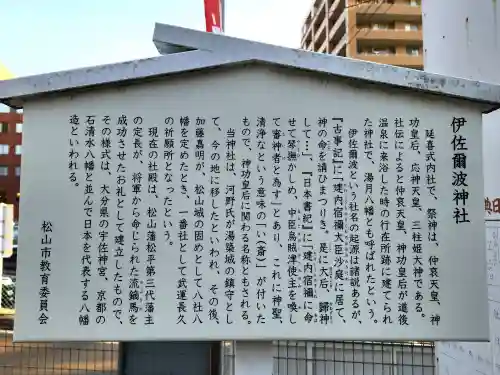 伊佐爾波神社
延喜式内社で、祭神は、仲哀天皇、神
功皇后、応神天皇、三柱姫大神である。
社伝によると仲哀天皇、神功皇后が道後
温泉に来浴した時の行在所跡に建てられ
た神社で、湯月八幡とも呼ばれたという。
伊佐爾波という社名の起源は諸説あるが、
『古事記』に「建内宿禰大臣沙庭に居て、
神の命を請ひまつりき。是に大后、歸神
して…」、『日本書紀』に「建内宿禰に命
せて琴撫かしめ、中臣烏賊津使主を喚し
て審神者と為す」とあり、これに神聖、
清浄なという意味の「い（斎）」が付いた
もので、神功皇后に関わる名称ともされる。
当神社は、河野氏が湯築城の鎮守とし
て、今の地に移したといわれ、その後、
加藤嘉明が、松山城の固めとして八社八
幡を定めたとき、一番社として武運長久
の祈願所となったという。
現在の社殿は、松山藩松平第三代藩主
の定長が、将軍から命じられた流鏑馬を
成功させたお礼として建立したもので、
その様式は、大分県の宇佐神宮、京都の
石清水八幡と並んで日本を代表する八幡
造といわれる。
松山市教育委員会